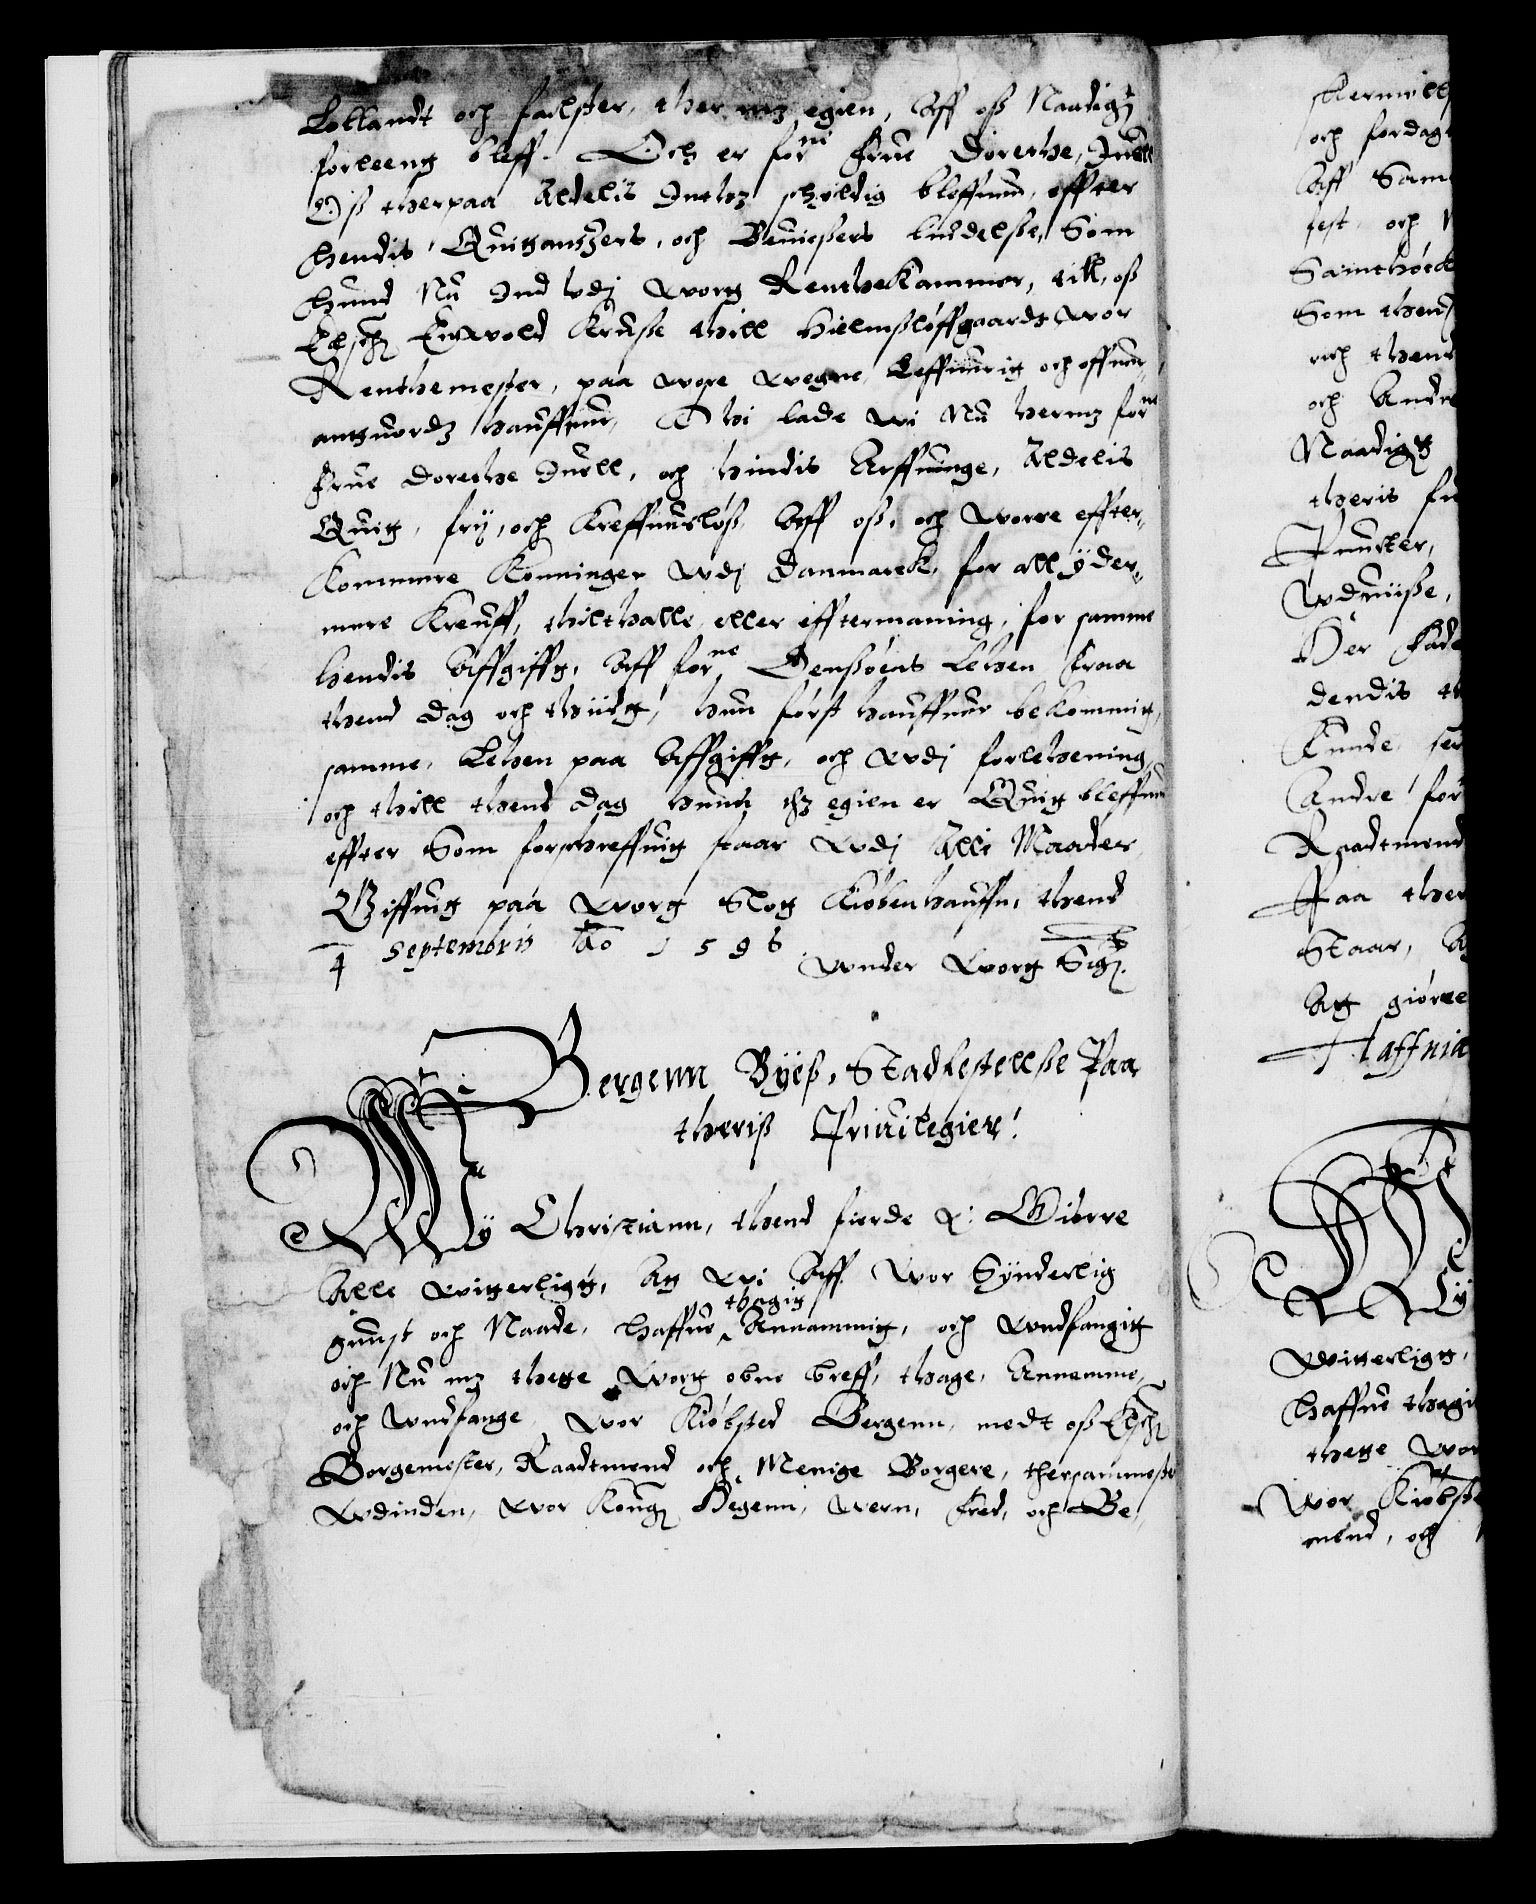 Lollandt och falster, ther mz egien, Aff oß Naadigst
forleent bleff. Och er forne Frue Dorethe Juell
Oß therpaa Aldelis Inthz schyldig bleffuen, effter
hendis Quitantzers, och Beuiesers liudelße, Som
hund Nu Ind udj wortt Renthekammer, till oß
Elsch. Enwold Kruße thill Hielmsløffgaardt wor
Renthemester, paa wore wegne leffuerit och offuer,
antuordz hauffuer, Thi lade wi Nu hermz forne
Frue Dorethe Juell, och hindis Arffuinge, Aldelis
Quit, frij, och Kreffuesløß, Aff oß, och worre effter,
kommere Konninger wdj Danmarck, for all ÿder,
mere Kreuff, thilthalle eller efftermaning, for samme
hendis Affgifft, Aff forne Lehen fraa
thend dag och thiidt, hun først hauffuer bekommit,
samme, Lehen paa Affgifft, och wdj forlehening,
och thill thend dag hund thz egien er Quit bleffuen
effter Som forschreffuit staar wdj Alle Maader,
Giffuit paa wort Slot Kiøbenhauffn, thend
4 Septembris Ao 1596 wnder wort Sig.
Bergenn Byeß, Stadfestellße Paa
theriß Priuilegier!
Wÿ Christiann, thend fierde &: Giørre
Alle witterligtt, At wi Aff wor Sÿnderlig
gunst och Naade, haffue thagit Annammit, och wndfangit
och Nu mz thette wort obne breff, thage, Annemme,
och wndfange wor Kiøbsted Bergenn, medt oß Elsch.
Borgemester, Raadtmend och Menige Borgere, thersammesteds
wdinden, wor Kong. Hegenn, wern, fred, och Be,
och fordag
Aff Sam
fest, och
Som thend
och thend
och Andre
Naadigst
theris fr
wdnüße,
dendis th
kunde
Andre for
Raadtmend
Paa ther
Staar,
Att giøre
Haffnia
Wÿ
witterligt,
haffue thagi
thette wor
Wor Kiøbste
mend, och